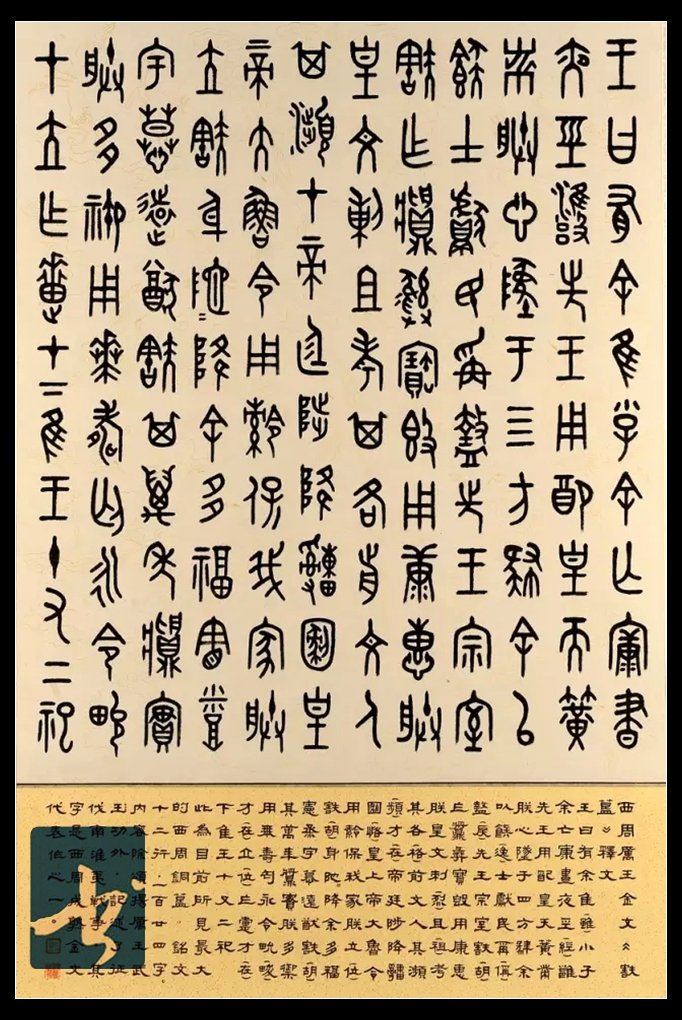 王曰有余隹小子余亡康晝
夜巠雝先王用配皇天簧
黹朕心墜于四方肆余以
餕士獻民爯盩先王宗室
㝬乍𩰬彝寶簋用康惠朕
皇文剌且考其各前文人
其瀕才帝廷陟降圞皇
帝大魯令用保我家朕
立㝬身阤=降余多福憲烝
宇慕遠猷㝬其萬年𩰬實
朕多禦用壽匄永令畯
才立乍疐才下隹王十又二祀
西周厲王金文《㝬
簋》釋文
王曰有余隹(雖)小子
余亡康晝夜巠(經)雝
先王用配皇天簧黹
朕心墜于四方肆余
以餕士獻民爯(稱)
盩先王宗室㝬(胡)
乍彝寶簋用康惠
朕皇文剌(烈)且(祖)考
其各(格)前文人其瀕
(頻)才(在)帝廷陟降
圞(恪)皇帝大魯令
用保我家朕立(位)
㝬(胡)身阤阤降余多福
憲烝宇慕遠猷㝬(胡)
其萬年實朕多禦
用壽匄永令畯
才(在)立(位)乍疐才(在)
下隹王十又二祀
此為目前所見最大
的西周銅簋銘文
十二行一百廿四字
內容除頌揚厲王武
功外記述了征
伐南淮夷戰事其
字是西周成熟金文
代表作之一